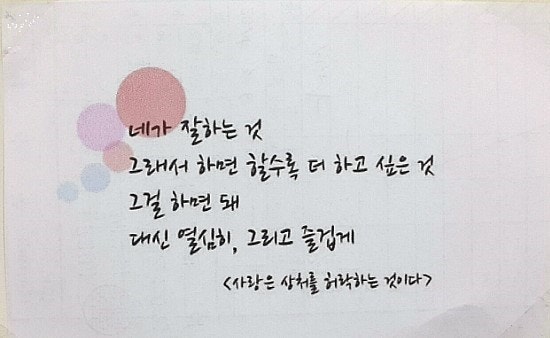 네가 잘하는 것
그래서 하면 할수록 더 하고 싶은 것
그걸 하면 돼
대신 열심히, 그리고 즐겁게
<사랑은 상처를 허락하는 것이다>